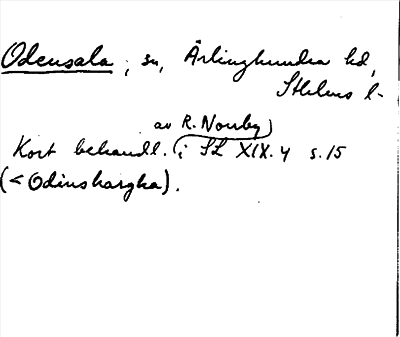 Odensala, sn, Ärlinghundra hd,
Sthlms l.
av R. Norrby
Kort behandl. i SL XIX. 4 s. 15
(< Odinshargha).